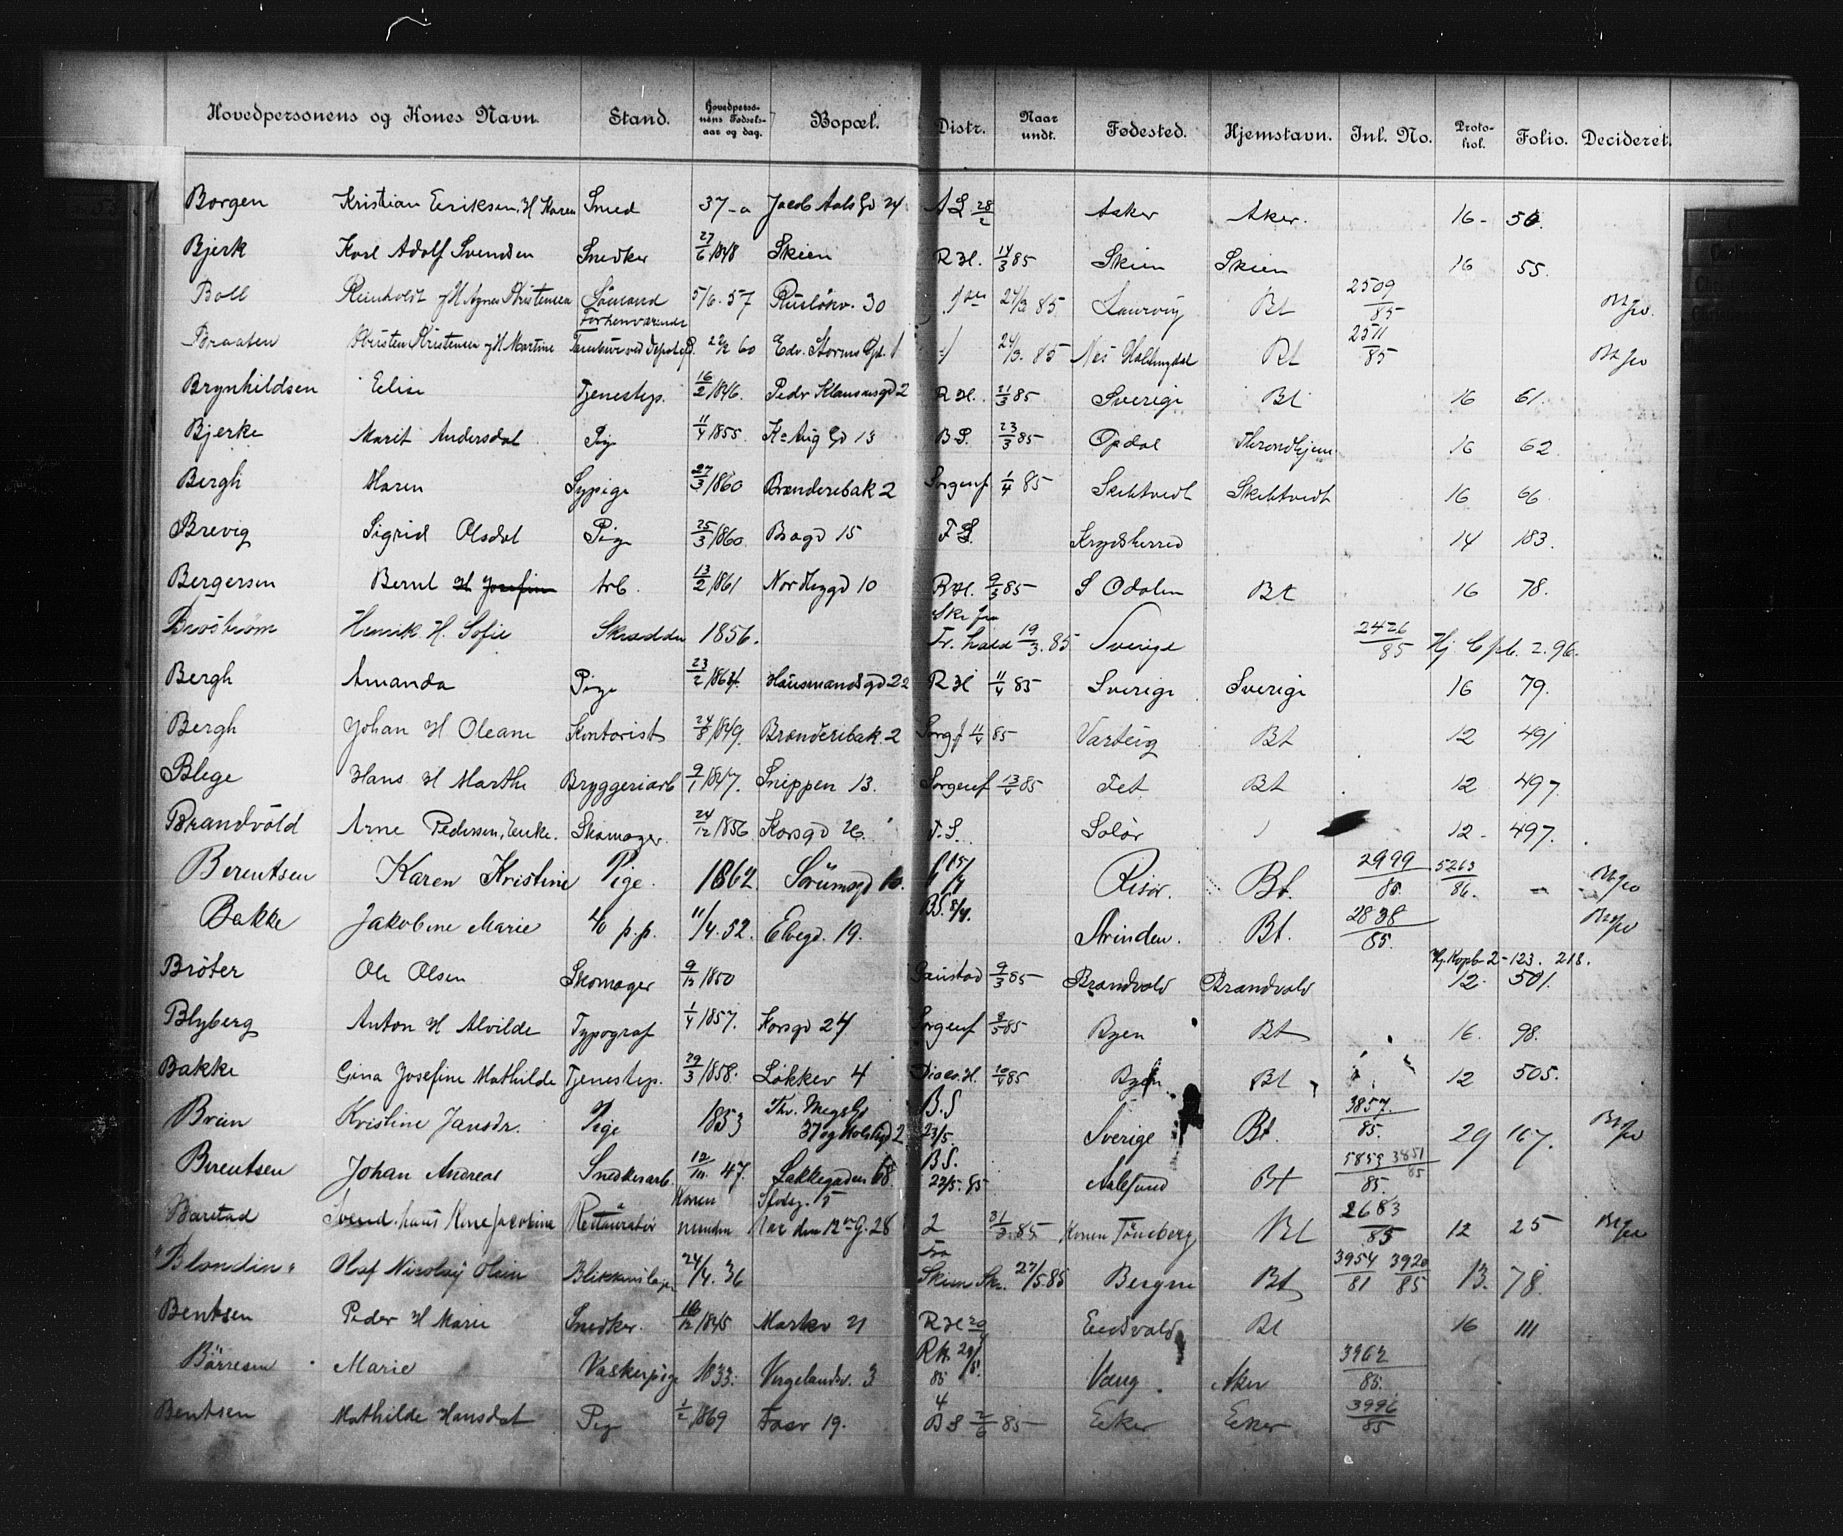 Hovedpersonens og Kones Navn. Stand. Hovedpersonens Fødselsaar og dag. Bopæl. Distr. Naar undt. Fødested. Hjemstavn. Inl. No. Protokol. Folio. Decideret.
Borgen Kristian Eriksen, H Karen Smed 37-a Jacob Aals Gd 24 A L 28/2 Asker Aker. 16- 50.
Bjerk Karl Adolf Svendsen Snedker 27/6 1848 Skien R H. 14/3 85 Skien Skien 16 55.
Boll Reinholdt g H Agnes Kristensen Sømand 5/6. 57 Ruseløkv. 30 24/3 85 Laurvig Bt 2509/85
Braaten Thorsten Kristensen g H Martine Forhenværende 22/2 60 Edv. Storms Gd. 1 24/3. 85 Nes Hallingdal Bt 2511/85
Brynhildsen Elise Tjenestep. 16/2 1846. Peder Klausensgd 2 R H. 21/3 85 Sverige Bt 16 61.
Bjerke Marit Andersdat Pige 11/4 1855. K. Aug Gd 13 B S. 23/3 85 Opdal Throndhjem 16 62
Bergh Maren Sypige 27/3 1860 Brænderibak 2 Sorgenf 1/4 85 Skibtvedt Skibtvedt 16 66
Brevig Sigrid Olsdat Pige 25/3 1860. Bragd 15 F S. Krydsherred 14 183.
Bergersen Bernt H Josefine Arb. 13/2 1861 Nordbygd 10 R H. 9/3 85 S Odalen Bt 16 78.
Broström Henrik H. Sofie Skrædder 1856. Skr fra Fr. hald 19/3. 85 Sverige 2426/85 Hj. Cpb. 2. 96.
Bergh Amanda Pige 23/2 1864. Hausmandsgd 22 R H 11/4 85 Sverige Sverige 16 79.
Bergh Johan H Oleane Kontorist 24/8 1849. Brænderibak. 2 Sorgf 11/4 85 Varteig Bt 12 491
Blege Hans H Marthe Bryggeriarb 9/1 1847. Snippen 13. Sorgenf 13/4 85 Fet Bt 12 497.
Brandvold Arne Pedersen, Enke. Skomager. 24/12 1856 Korsgd 26 F. S. Solør 12- 497.
Berentsen Karen Kristine Pige. 1862. Sørumsgd 10. 15/4 Risør. Bt. 2999/85. 5263/86.
Bakke Jakobine Marie 11/4. 52. Elvegd. 19. B S. 8/4. Strinden. Bt. 2838/85.
Brøter Ole Olsen Skomager 9/12 1850 Gaustad 9/3 85 Brandvold Brandvold Hj. Kopb 2-123. 218. 12. 501.
Blyberg Anton H Alvilde Typograf 1/4 1857. Korsgd 24 Sorgenf 8/5 85 Byen Bt 16. 98.
Bakke Gina Josefine Mathilde Tjenestep. 29/3 1858. Løkkev 4 Diaco. H. 10/4 85 Byen Bt 12 505.
Brun Kristine Jansdr. Pige 1853 Thv. Meyegd 37 og Holstgd 2 B. S 23/5. Sverige Bt. 3857./85. 29 167.
Berentsen Johan Andreas Snedkerarb. 12/10. 47. Lakkegaden 68. B S. 22/5. 85 Aalesund Bt 5853 3851/85.
Barstad Svend. hans Kone Jacobine Restauratör Konen 2 31/3. 85 Konen Tönsberg Bt 2683/85 12 25
"Blondin" Olaf Nicolay Olsen Blikkenslager 24/4. 36 Fra Skien Skr. 27/5. 85 Bergen Bt 3954/81 3920/85 13. 78.
Bentsen Peder H Marie Snedker. 1845 Markv 21 R H 20/4 Eidsvold Bt 16 111
Börresen Marie Vaskepige 1833. Vergelandsv. 3 R H. 85 Vang. Aker 3962/85.
Bentsen Mathilde Hansdat Pige 1/2 1869 Fossv 19. 4 B S 2/6 85 Eeker Eeker 3996/85